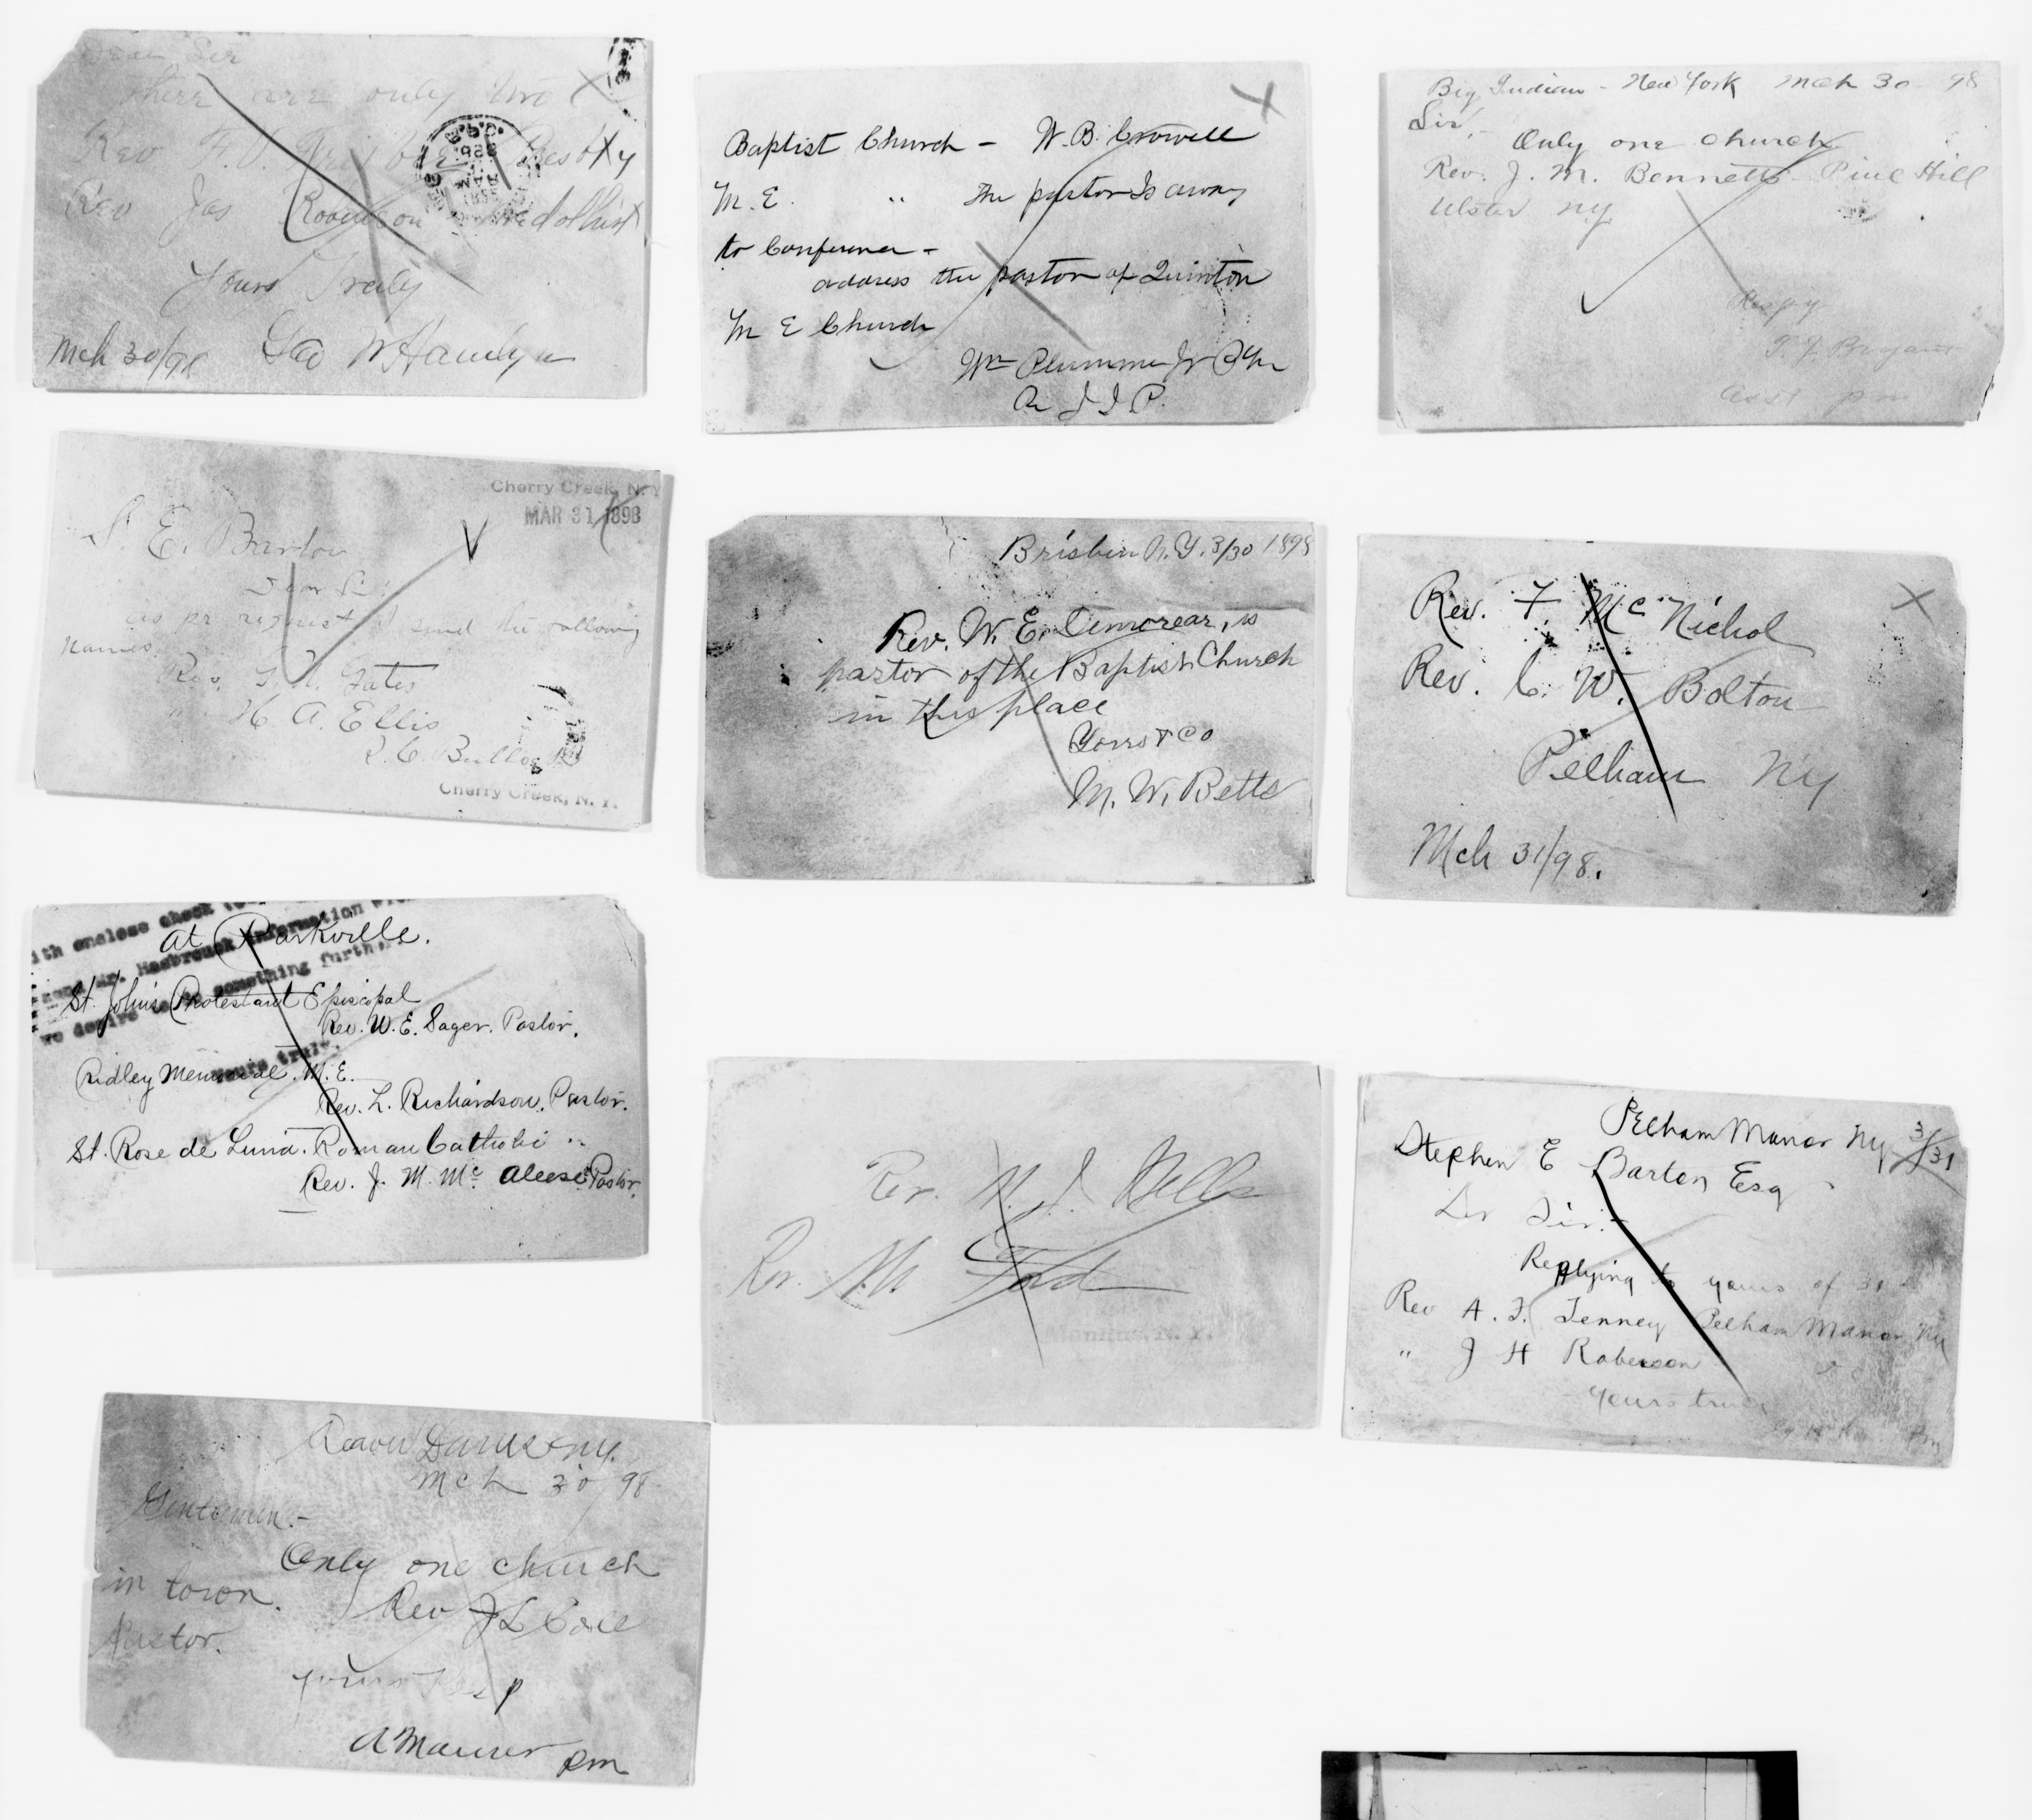 Dear Sir
There are only two
Rev F. Presbty
Rev Jas Robertson Methodist
Yours Truly
Mch 30/98 Geo W Hamlyn
Baptist Church - W. B. Crowell
M. E. " The pastor is away
to Conference -
address the pastor of Quinton
M E Church
Wm Plummer Jr
Big Indian - New York Mch 30 - 98
Sir,-
Only one church
Rev. J. M. Bennett - Pine Hill
Ulster NY
Respy
T. J. Bryant
asst pm
Cherry Creek, N.Y.
MAR 31 1898
S. E. Barton
Dear Sir
as pr request I send the following
names.
Rev. Gates
" H. A. Ellis
Cherry Creek, N. Y.
Brisben N.Y. 3/30 1898
Rev. W. E. Demorear, is
pastor of the Baptist Church
in this place
Yours & Co
M. W. Betts
Rev. F. McNichol
Rev. C. W. Bolton
Pelham NY
Mch 31/98.
ith enclose check
Mr. Hasbrouck information
something further
we desire
yours truly,
At Parkville.
St. John's Protestant Episcopal
Rev. W. E. Sager. Pastor.
Ridley Memorial. M. E.
Rev. L. Richardson. Pastor.
St. Rose de Lima. Roman Catholic
Rev. J. M. McAleese Pastor.
Rev. Nellis
Rev. Ford
Manlius, N. Y.
Pelham Manor NY 3/31
Stephen E Barton Esq
Dr Sir:-
Replying to yours of 31
Rev A. F. Tenney Pelham Manor NY
" J H Roberson
Yours truly
Pm
Beaver Dams NY.
Mch 30 98
Gentlemen.-
Only one church
in town.
Rev J L Cole
Pastor.
yours Resp
A Maurer pm